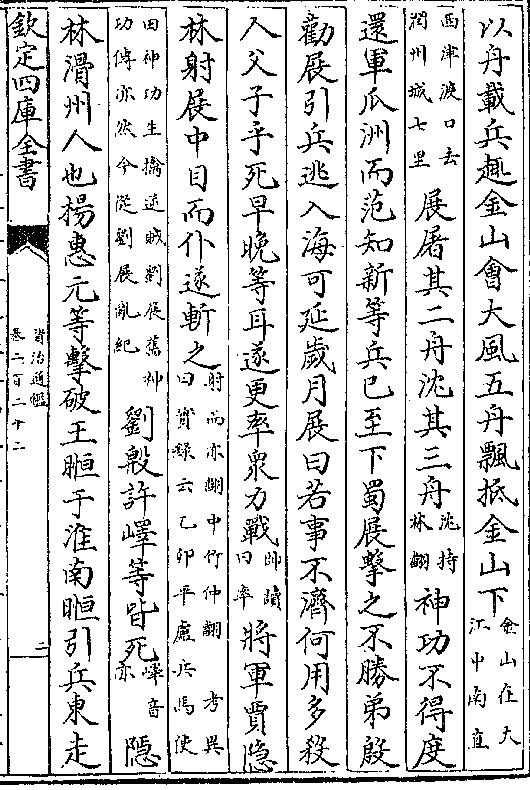 以舟載兵趣金山㑹大風五舟飄抵金山下金山在大江中南直
西津渡口去潤州城七里展屠其二舟沈其三舟沈持林翻神功不得度
還軍瓜洲而范知新等兵已至下蜀展擊之不勝弟殷
勸展引兵逃入海可延歲月展曰若事不濟何用多殺
人父子乎死早晚等耳遂更率衆力戰帥讀曰率將軍賈隱
林射展中目而仆遂斬之射而亦翻中竹仲翻考異曰實錄云乙卯平盧兵馬使
田神功生擒逆賊劉展舊神功傳亦然今從劉展亂紀劉殷許嶧等皆死嶧音亦隱
林滑州人也楊惠元等擊破王暅于淮南暅引兵東走
欽定四庫全書
資治通鑑
卷二百二十二
二